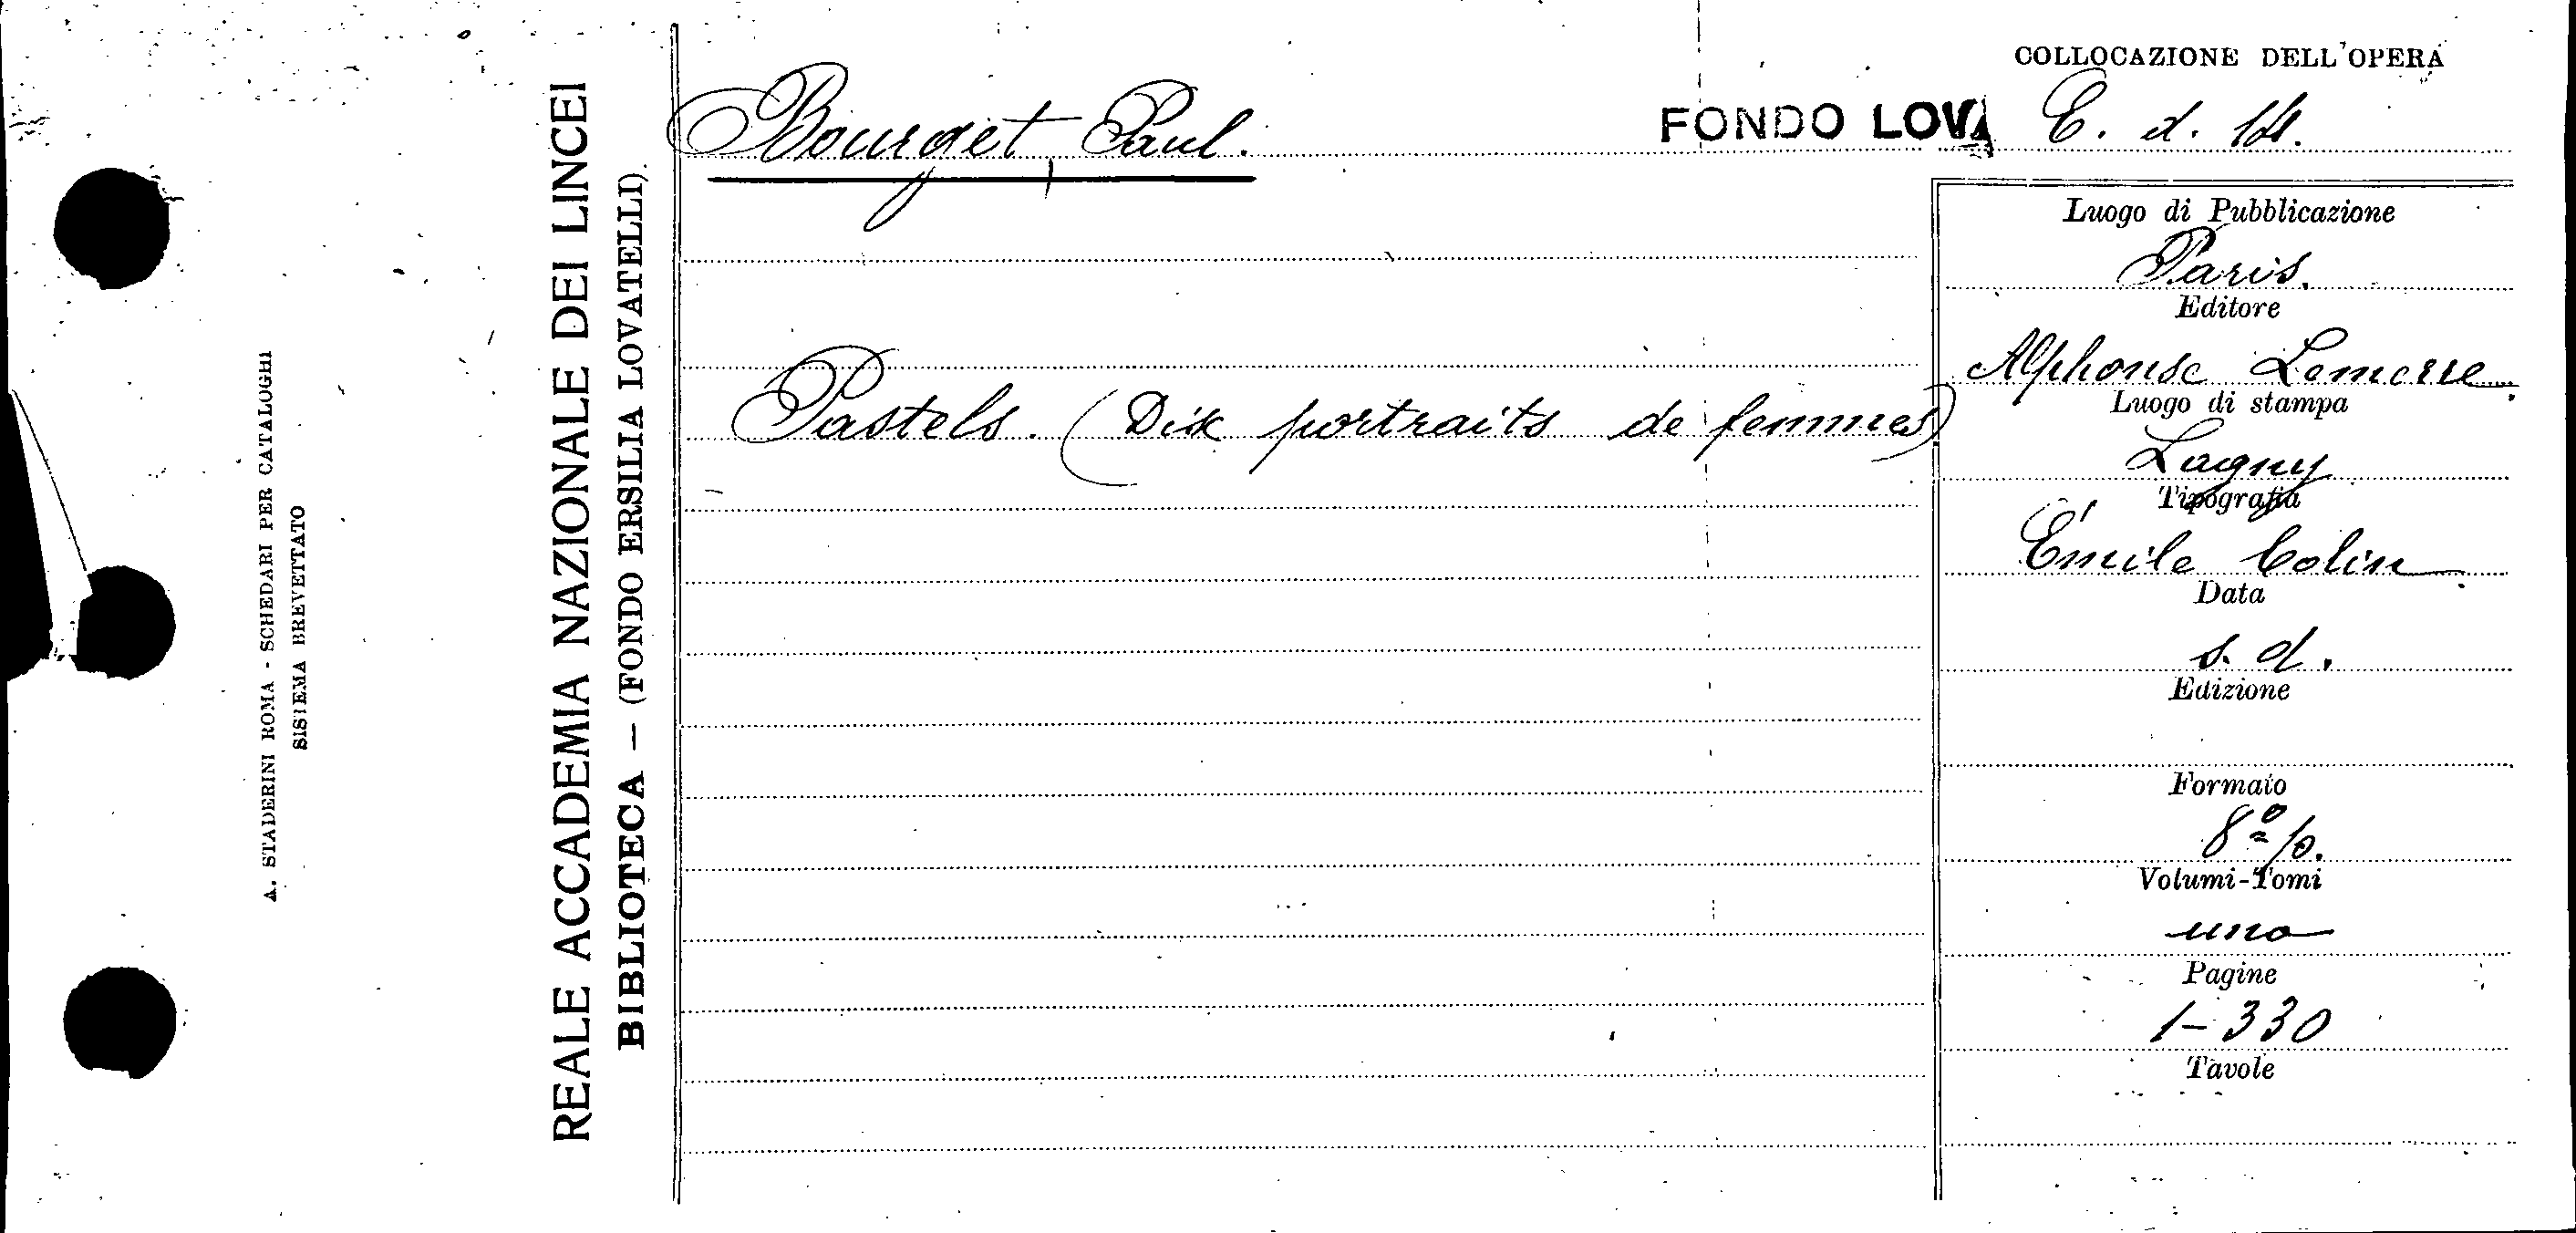 A. STADERINI ROMA - SCHEDARI PER CATALOGHI
SISTEMA BREVETTATO
REALE ACCADEMIA NAZIONALE DEI LINCEI
BIBLIOTECA — (FONDO ERSILIA LOVATELLI)
COLLOCAZIONE DELL'OPERA
Bourget, Paul.
FONDO LOVA E. d. 14.
Pastels. (Dix portraits de femmes)
Luogo di Pubblicazione
Paris.
Editore
Alphonse Lemerre.
Luogo di stampa
Lagny
Tipografia
Émile Colin.
Data
s. d.
Edizione
Formato
8º p.
Volumi-Tomi
uno
Pagine
1-330
Tavole